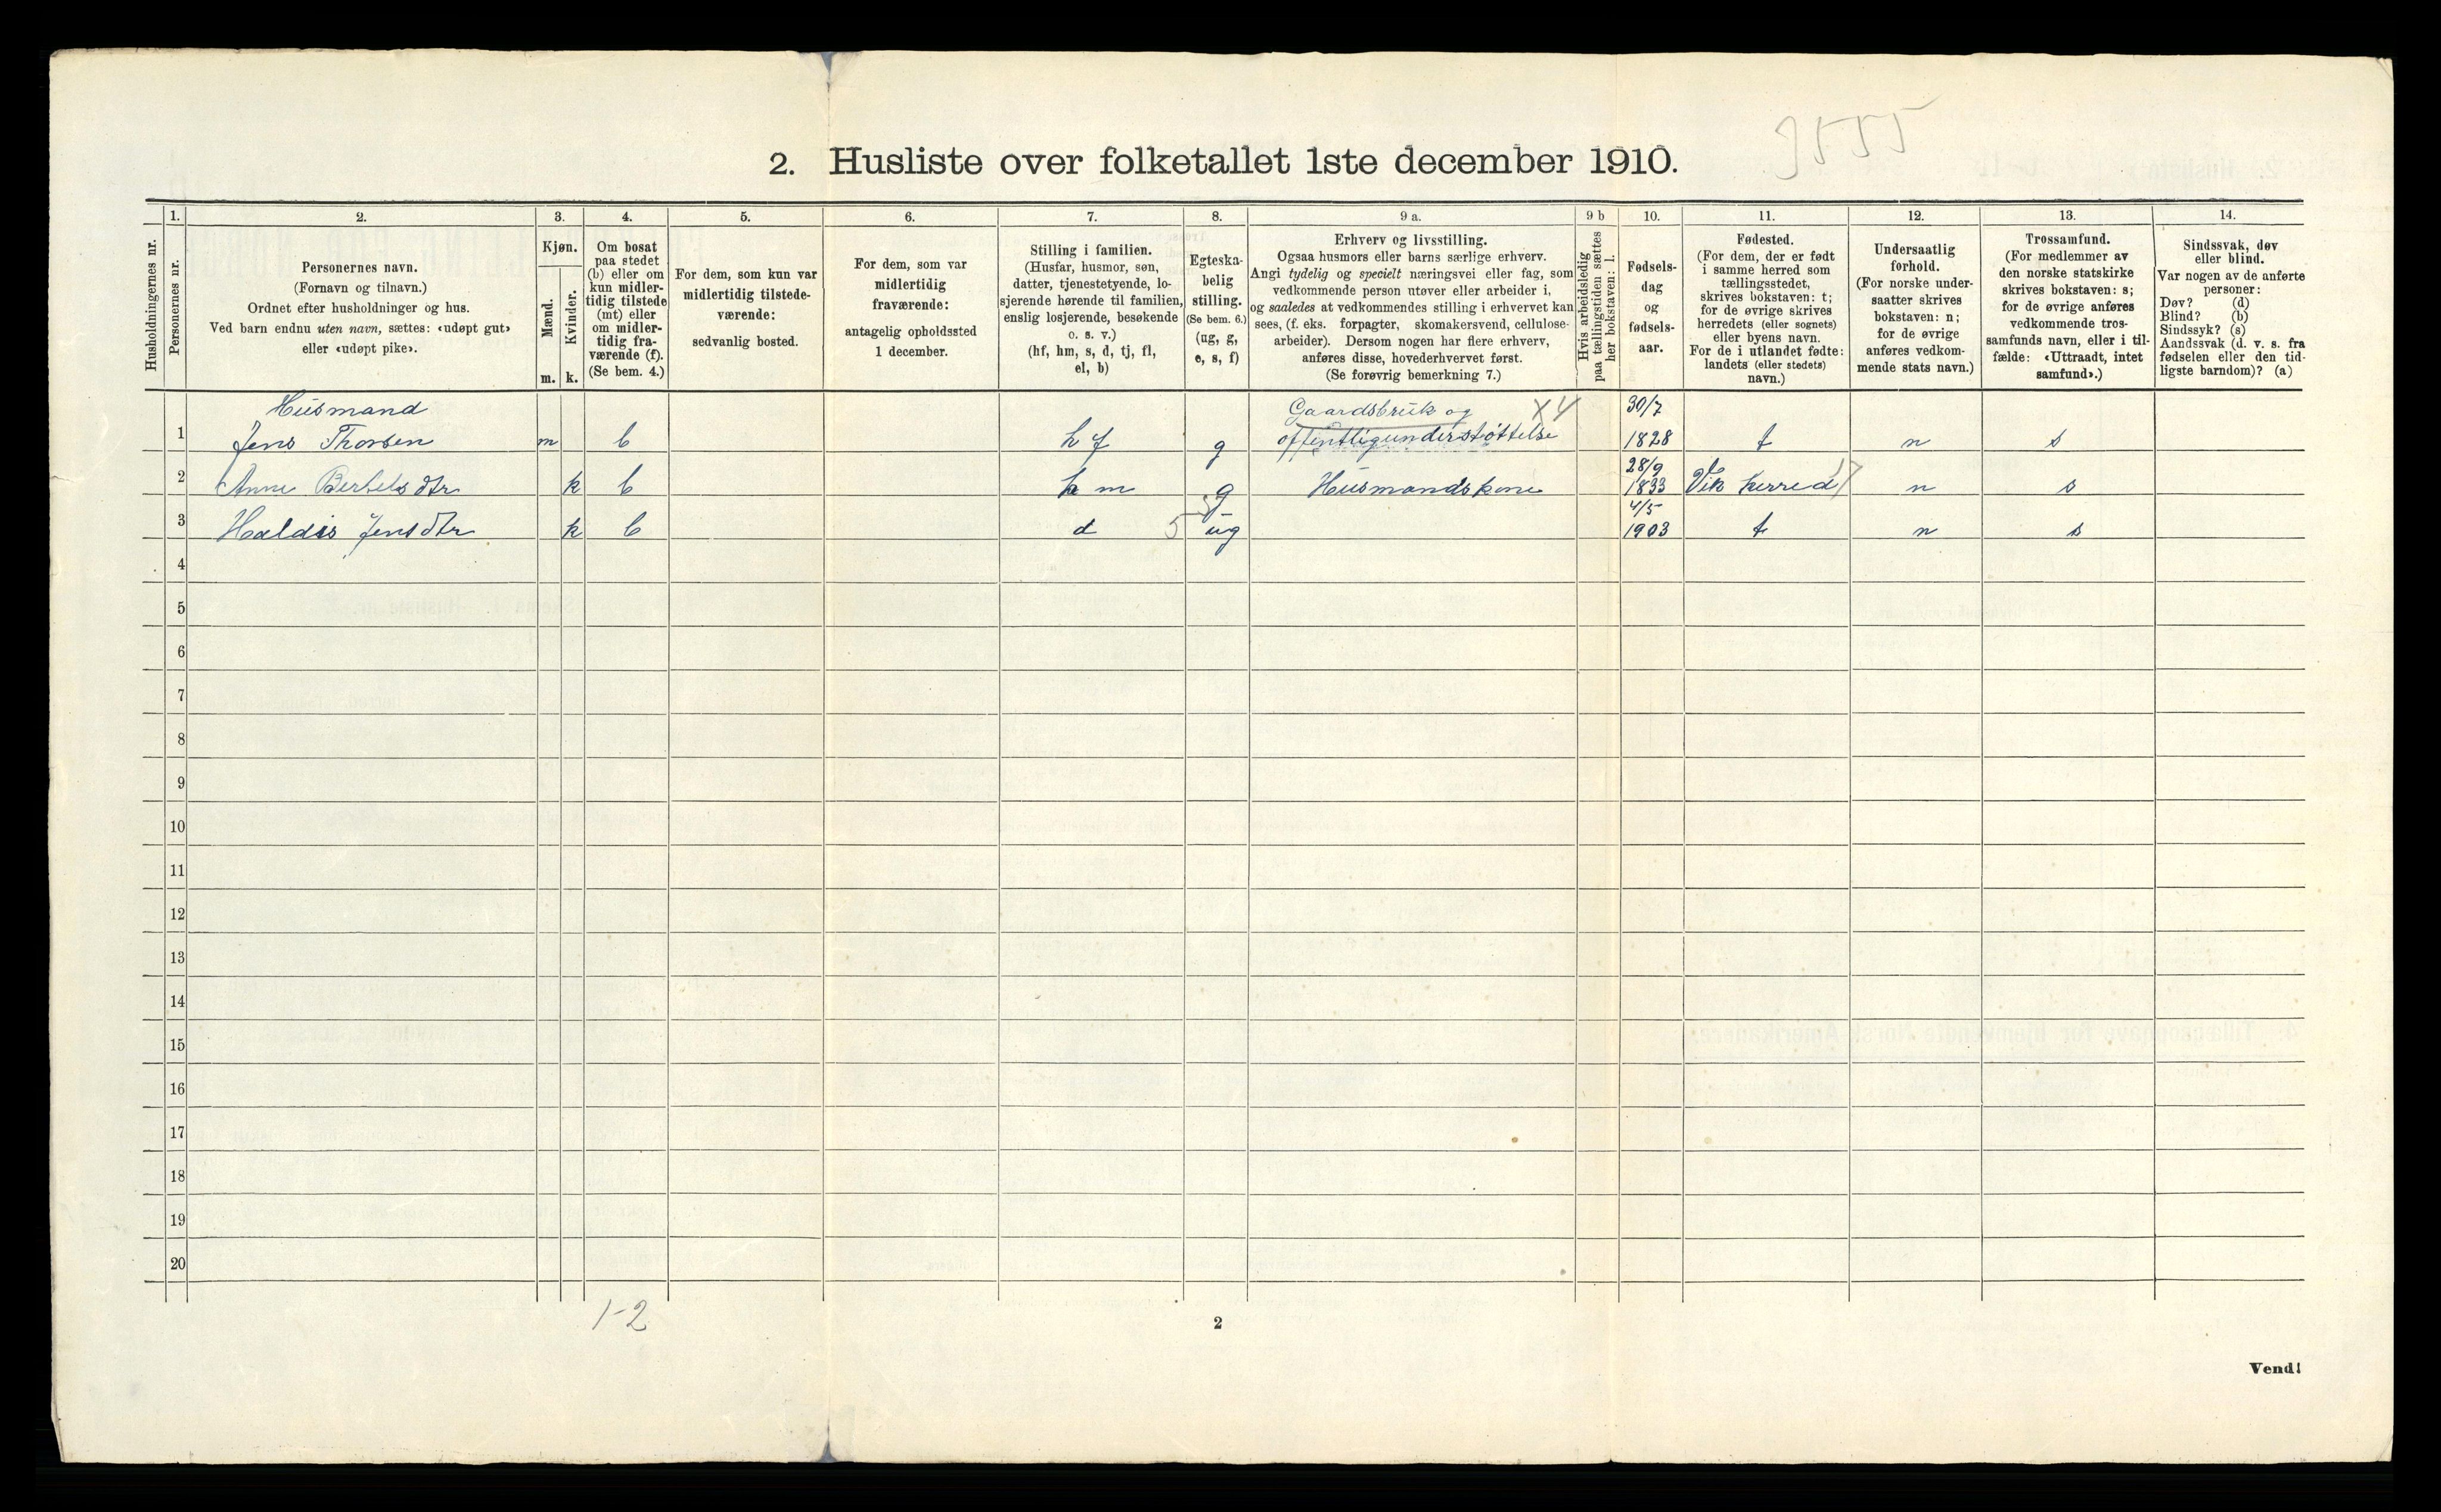 3555
2. Husliste over folketallet 1ste december 1910.
Husholdningernes nr.
1.
Personernes nr.
2.
Personernes navn.
(Fornavn og tilnavn.)
Ordnet efter husholdninger og hus.
Ved barn endnu uten navn, sættes: «udøpt gut»
eller «udøpt pike».
3.
Kjøn.
Mænd.
Kvinder.
m. k.
4.
Om bosat
paa stedet
(b) eller om
kun midler-
tidig tilstede
(mt) eller
om midler-
tidig fra-
værende (f).
(Se bem. 4.)
5.
For dem, som kun var
midlertidig tilstede-
værende:
sedvanlig bosted.
6.
For dem, som var
midlertidig
fraværende:
antagelig opholdssted
1 december.
7.
Stilling i familien.
(Husfar, husmor, søn,
datter, tjenestetyende, lo-
sjerende hørende til familien,
enslig losjerende, besøkende
o. s. v.)
(hf, hm, s, d, tj, fl,
el, b)
8.
Egteska-
belig
stilling.
(Se bem. 6.)
(ug, g,
e, s, f)
9 a.
Erhverv og livsstilling.
Ogsaa husmors eller barns særlige erhverv.
Angi tydelig og specielt næringsvei eller fag, som
vedkommende person utøver eller arbeider i,
og saaledes at vedkommendes stilling i erhvervet kan
sees, (f. eks. forpagter, skomakersvend, cellulose-
arbeider). Dersom nogen har flere erhverv,
anføres disse, hovederhvervet først.
(Se forøvrig bemerkning 7.)
9 b
Hvis arbeidsledig
paa tællingstiden sættes
her bokstaven: l.
10.
Fødsels-
dag
og
fødsels-
aar.
11.
Fødested.
(For dem, der er født
i samme herred som
tællingsstedet,
skrives bokstaven: t;
for de øvrige skrives
herredets (eller sognets)
eller byens navn.
For de i utlandet fødte:
landets (eller stedets)
navn.)
12.
Undersaatlig
forhold.
(For norske under-
saatter skrives
bokstaven: n;
for de øvrige
anføres vedkom-
mende stats navn.)
13.
Trossamfund.
(For medlemmer av
den norske statskirke
skrives bokstaven: s;
for de øvrige anføres
vedkommende tros-
samfunds navn, eller i til-
fælde: «Uttraadt, intet
samfund».)
14.
Sindssvak, døv
eller blind.
Var nogen av de anførte
personer:
Døv? (d)
Blind? (b)
Sindssyk? (s)
Aandssvak (d. v. s. fra
fødselen eller den tid-
ligste barndom)? (a)
Husmand Gaardsbruk og X4 30/7
1 Jens Thorsen m b hf g offentligunderstøttelse 1828 t n s
28/9
2 Anne Bertelsdtr k b hm g Husmandskone 1833 Vik herred n s
4/5
3 Haldis Jensdtr k b d 5 ug 1903 t n s
4
5
6
7
8
9
10
11
12
13
14
15
16
17
18
19
20
1-2
2
Vend!